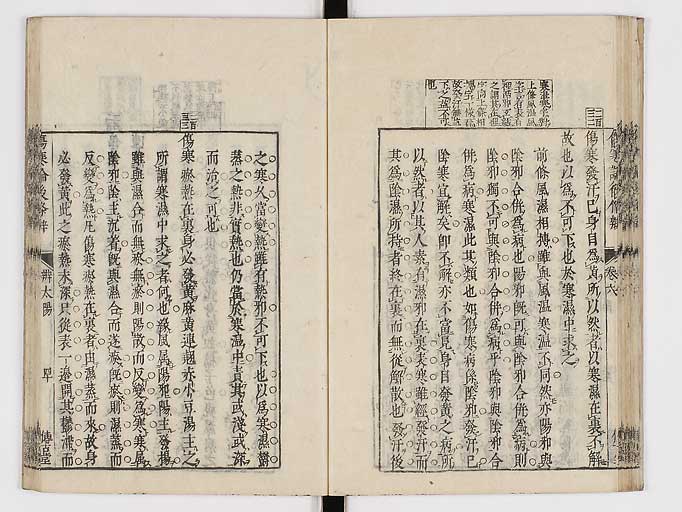 二百
三二
傷寒發汗巳身目爲黃所以然者以寒濕在裏不解
故也以爲不可下也於寒濕中求之
前條風濕相搏雖與風寒温不同然亦陽邪與
陰邪合併爲病也陽邪既可與陰邪合併爲病則
陰邪獨不可與陰邪合併爲病乎陰邪與陰邪合
併爲病寒濕此其類也如傷寒病係陰邪發汗巳
陰寒宜解矣卽不解亦不當見身目發黃之病所
以然者以其人素有濕邪在裏表寒雖經發汗而
其爲陰濕所持者終在裏而無從解散也發汗後
之寒久當變熱雖有熱邪不可下也以爲寒濕鬱
蒸之熱非實熱也仍當於寒濕中責其或淺或深
而治之可也
二百
三三
傷寒瘀熱在裏身必發黃麻黃連翹赤小豆湯主之
所謂寒濕中求之者何也緣風屬陽邪陽主發揚
雖與濕合而無瘀無瘀則陽散而反變爲寒寒屬
陰邪陰主沉著既與濕合而遂瘀既瘀則濕蒸而
反變爲熱凡傷寒瘀熱在裏者由濕蒸而來故身
必發黃此之瘀熱未深只從表一邊開其鬱滯而
卷六
辨太陽